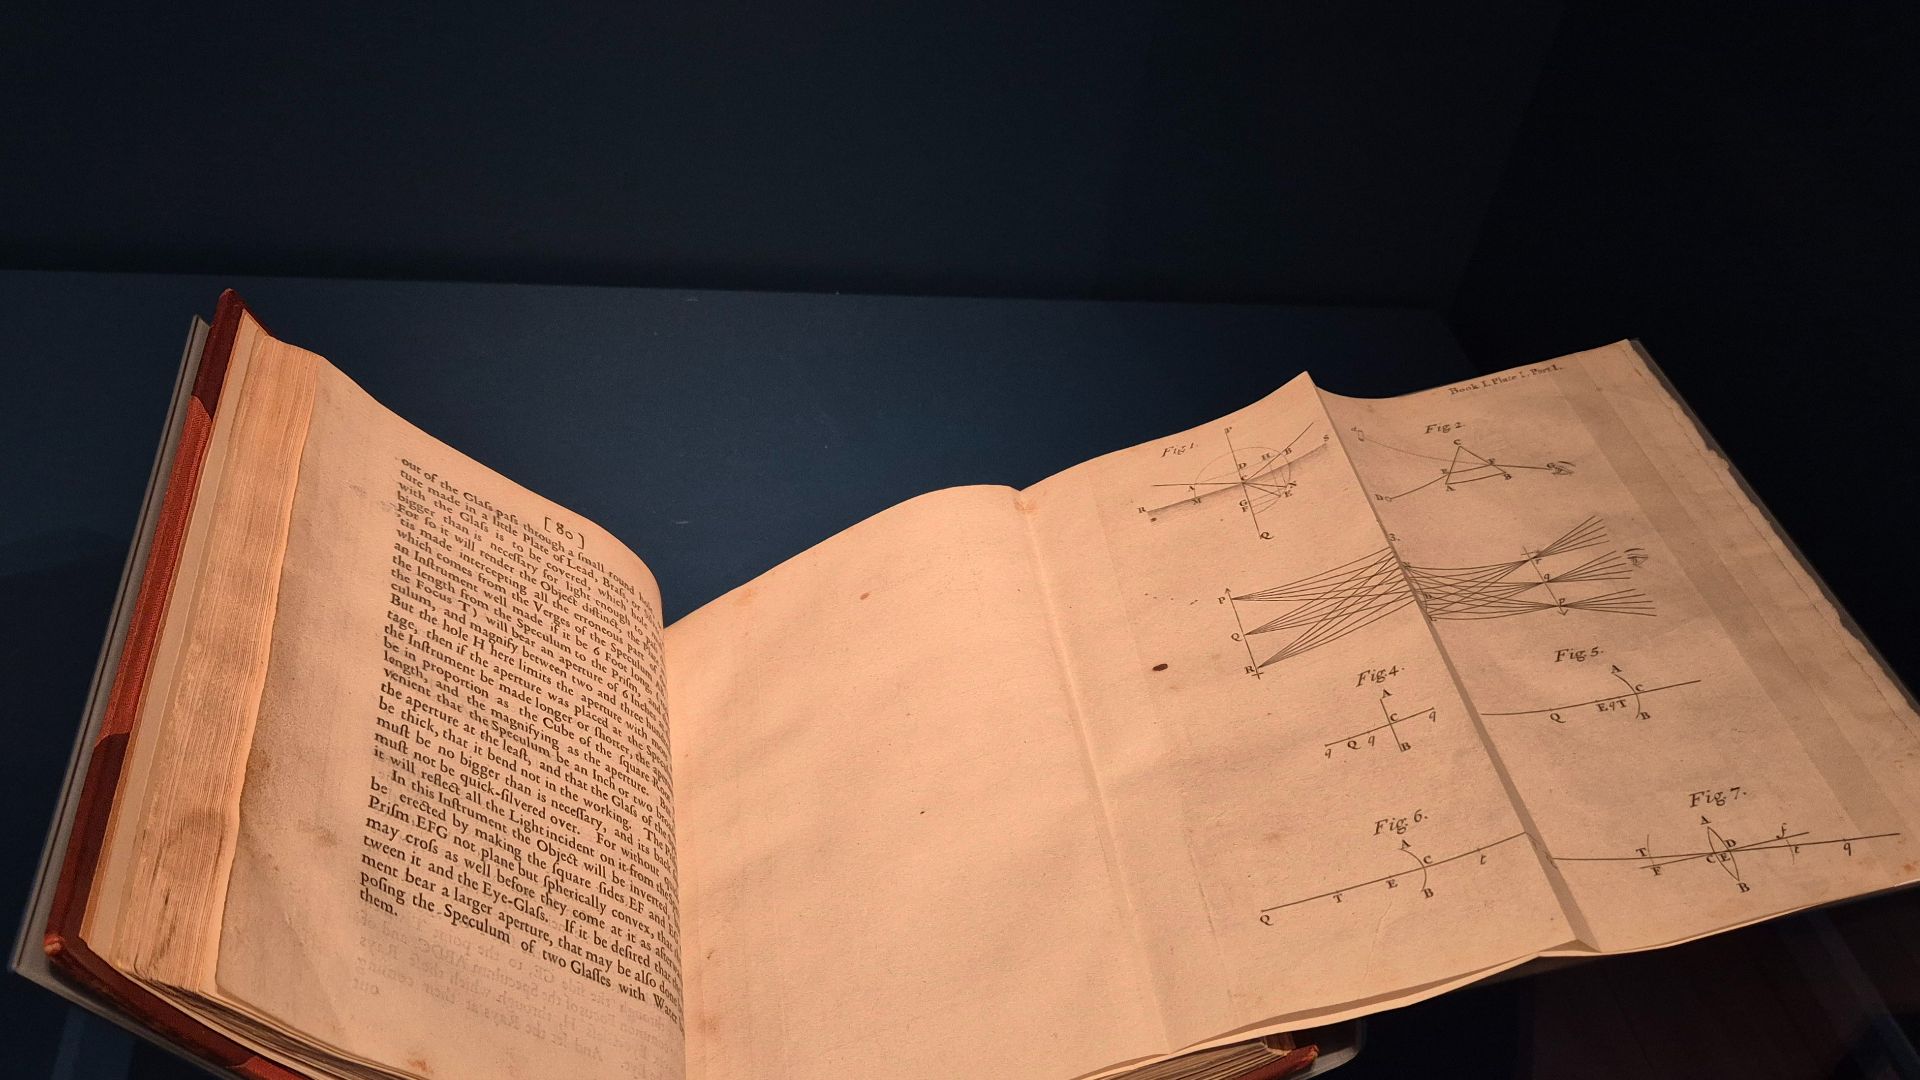 [ 80 ]
out of the Glaſs paſs through a ſmall round
ture made in a little Plate of Lead, Braſs, or
with the Glaſs is to be covered, which hole
bigger than is neceſſary for light enough to
For ſo it will render the Object diſtinct, the
'tis made intercepting all the erroneous part of
which comes from the Verges of the Speculum
an Inſtrument well made if it be 6 Foot long,
the length from the Speculum to the Priſm, and
the Focus T) will bear an aperture of 6 Inches
culum, and magnify between two and three
But the hole H here limits the aperture with
tage, then if the aperture was placed at the
the Inſtrument be made longer or ſhorter, the
be in proportion as the Cube of the ſquare Root
length, and the magnifying as the aperture. But
venient that the Speculum be an Inch or two
the aperture at the leaſt, and that the Glaſs of the
be thick, that it bend not in the working. The
muſt be no bigger than is neceſſary, and its back
muſt not be quick-ſilvered over. For without
it will reflect all the Light incident on it from the
In this Inſtrument the Object will be inverted,
be erected by making the ſquare ſides EF and
Priſm EFG not plane but ſpherically convex, that
may croſs as well before they come at it as
tween it and the Eye-Glaſs. If it be deſired that
ment bear a larger aperture, that may be alſo done
poſing the Speculum of two Glaſſes with Water
them.
Book I. Plate I. Part I.
Fig. 1.
P
S
D H B
C
A N
M G E
R F
Q
Fig. 2.
C
E F G
D A B
3.
P
Q
R
q
Fig. 4.
A
C q
q Q q B
Fig. 5.
A
C
Q E q T B
Fig. 6.
A
C t
T E B
Q
Fig. 7.
A
T C E D f
F t q
B